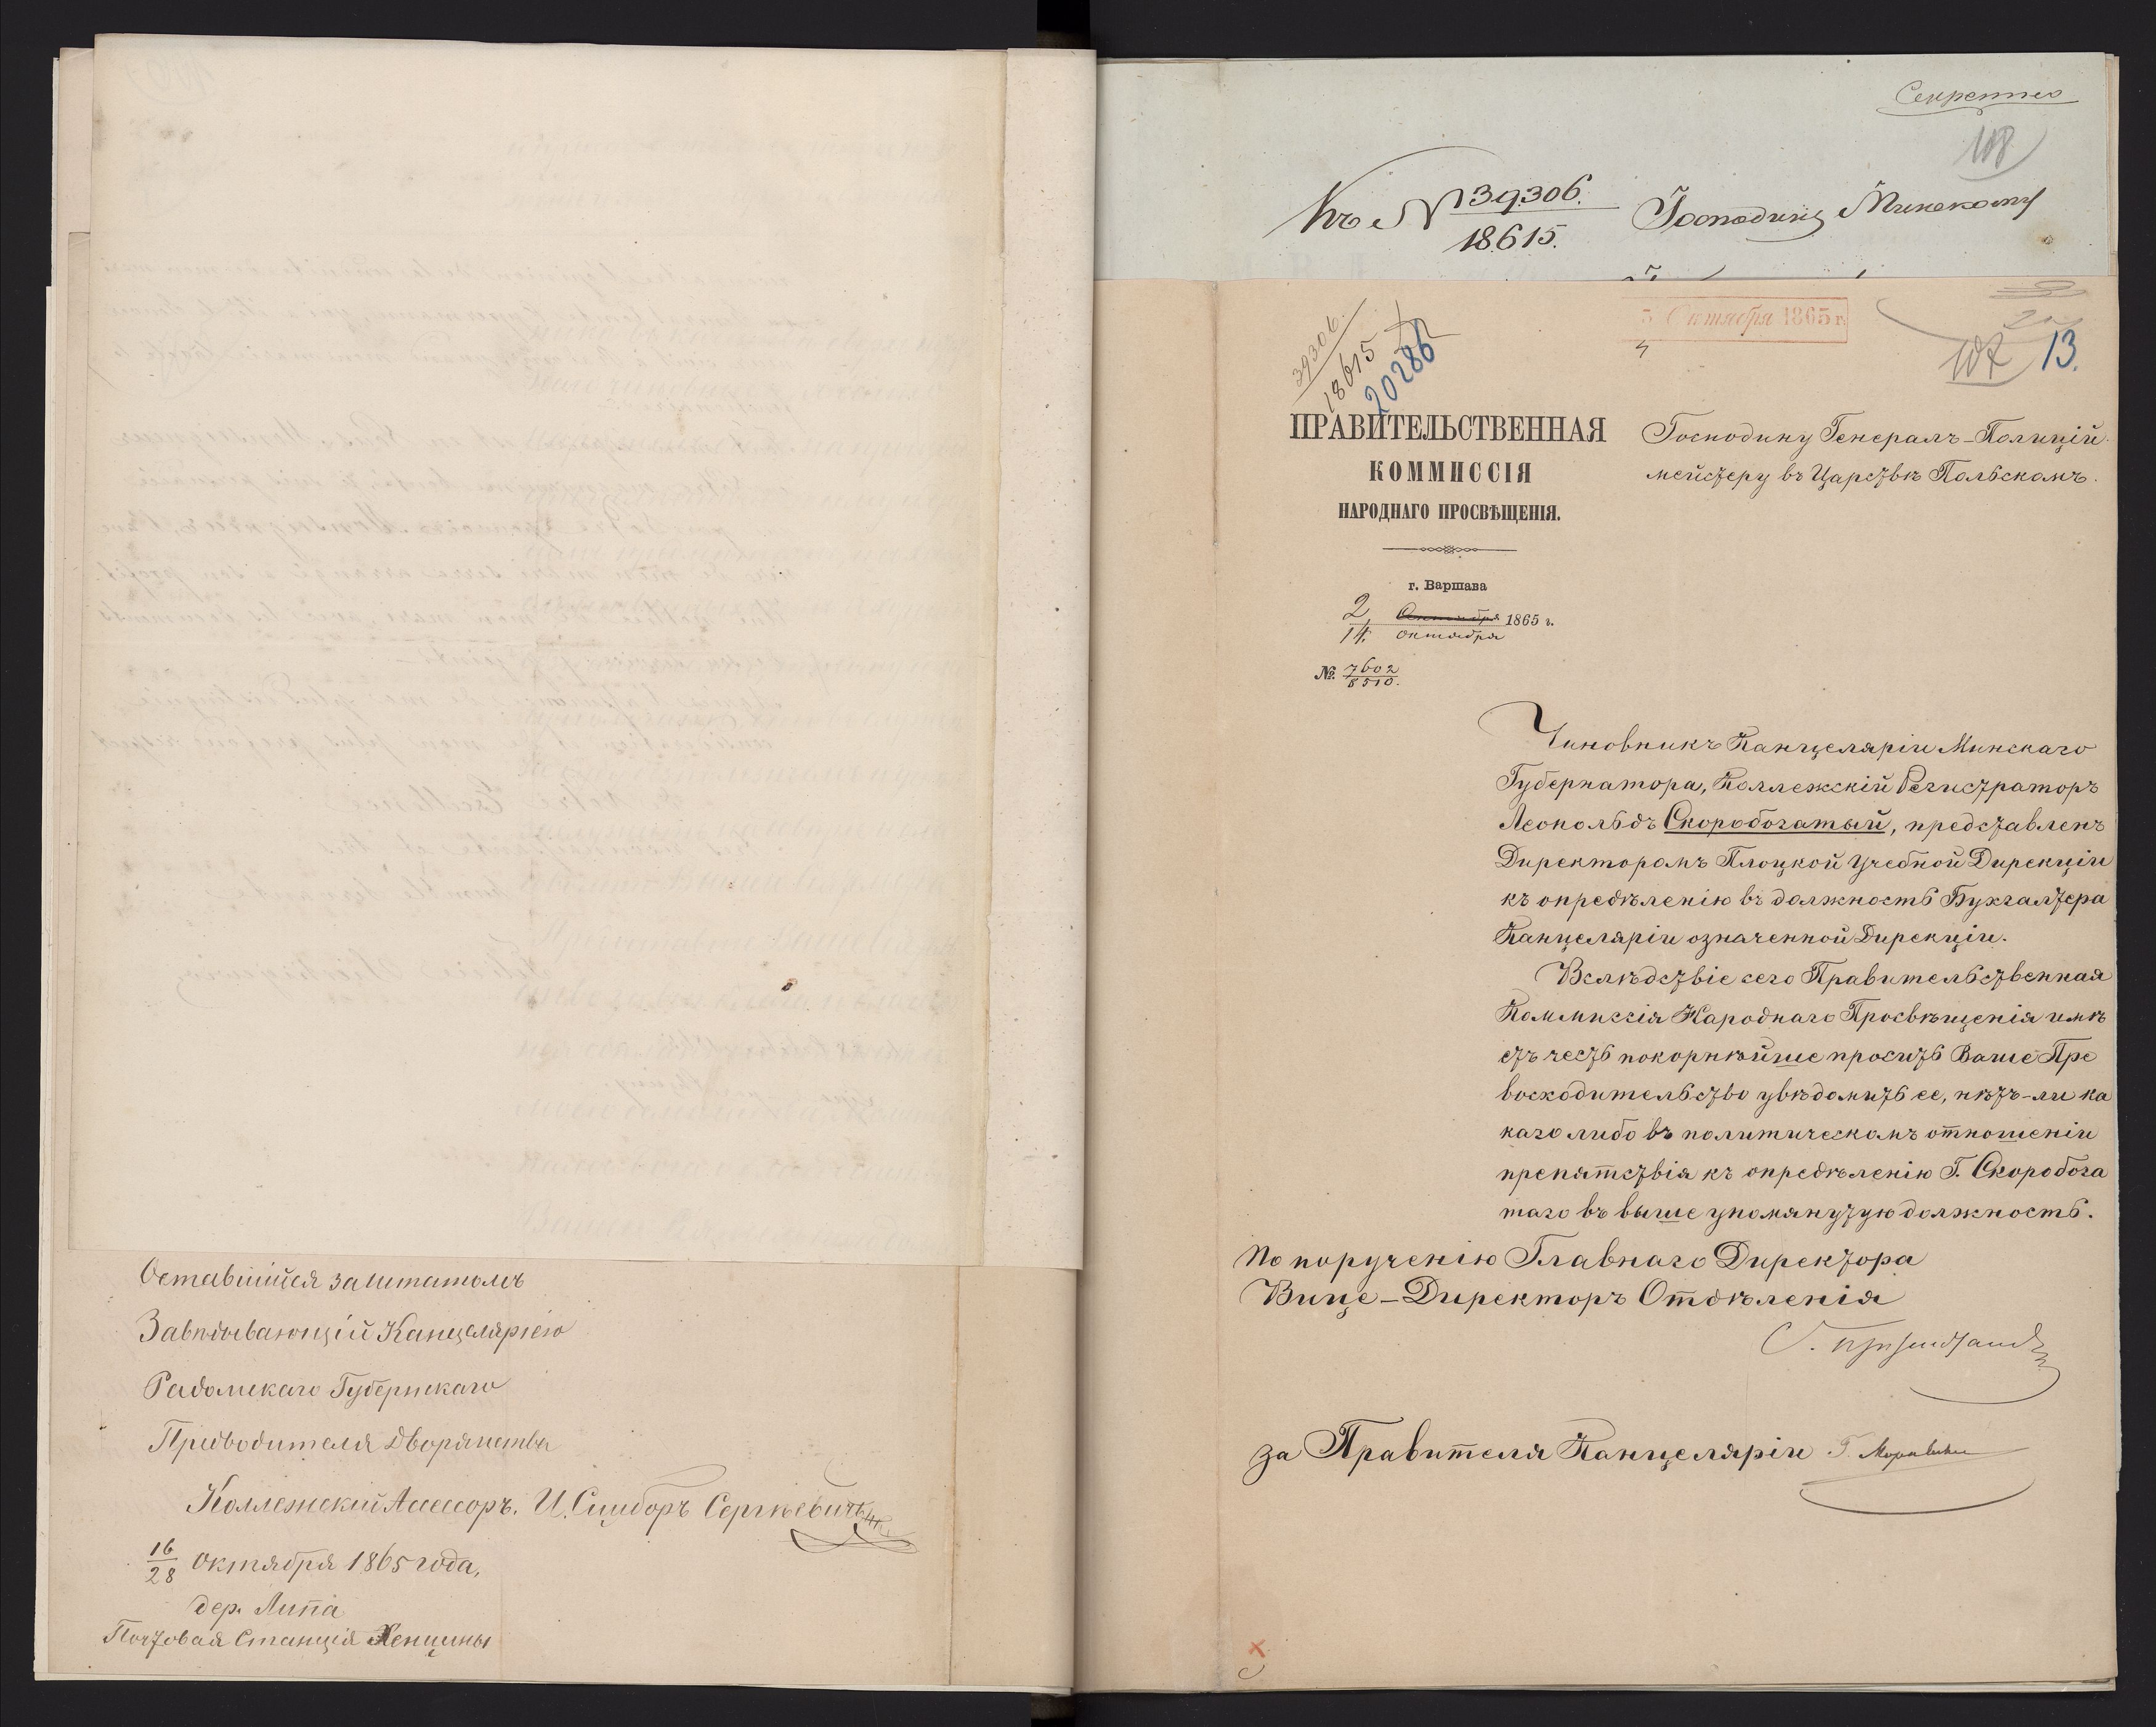 Оставшійся за штатомъ
Завѣдывающій Канцеляріею
Радомскаго Губернскаго
Предводителя Дворянства
Коллежскій Ассесоръ. И. Сциборъ Сергѣевичъ
16/28 Октября 1865 года,
дер. Липа
Почтовая Станція Хенцины
Секретно
108
Къ № 39306./18615. Господину Минскому
5 Октября 1865 г.
39306
18615
20286
107 13.
ПРАВИТЕЛЬСТВЕННАЯ
КОММИССІЯ
НАРОДНАГО ПРОСВѢЩЕНІЯ.
г. Варшава
2/14. октября 1865 г.
№ 7602/8510.
Господину Генералъ-Полицій
мейстеру въ Царствѣ Польскомъ.
Чиновникъ Канцеляріи Минскаго
Губернатора, Коллежскій Регистраторъ
Леопольдъ Скоробогатый, представленъ
Директоромъ Плоцкой Учебной Дирекціи
къ опредѣленію въ должность Бухгалтера
Канцеляріи означенной Дирекціи.
Вслѣдствіе сего Правительственная
Коммиссія Народнаго Просвѣщенія имѣ
етъ честь покорнѣйше просить Ваше Пре
восходительство увѣдомить ее, нѣтъ-ли ка
каго либо въ политическомъ отношеніи
препятствія къ опредѣленію Г. Скоробога
таго въ выше упомянутую должность.
По порученію Главнаго Директора
Вице-Директоръ Отдѣленія
за Правителя Канцеляріи